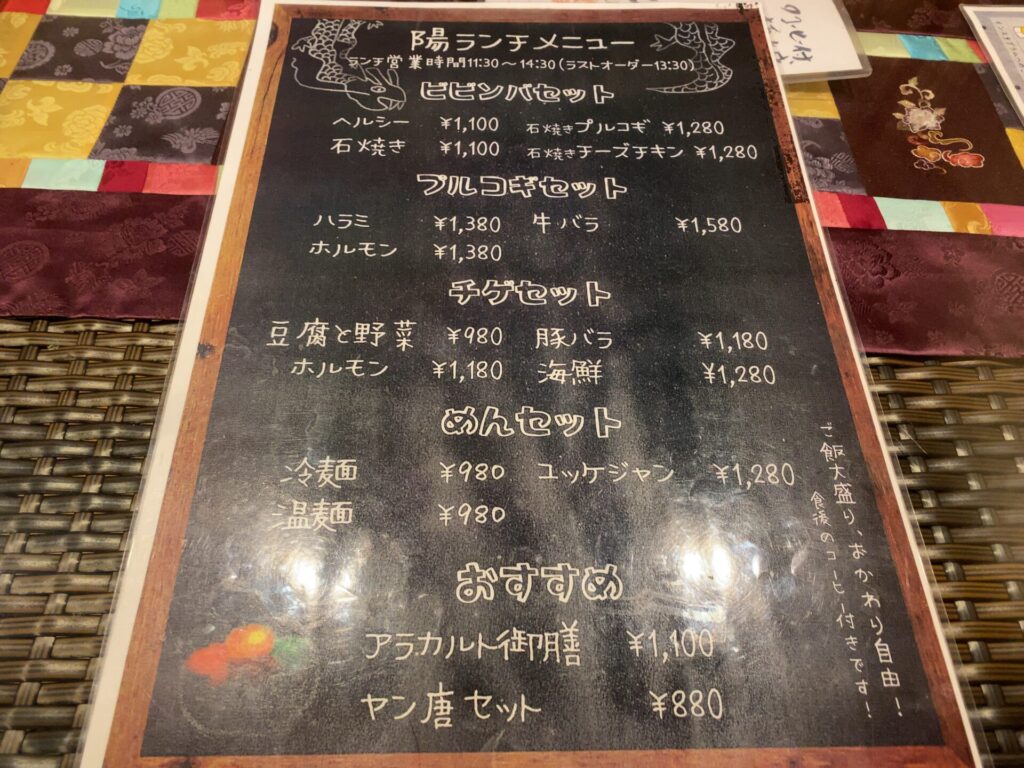 陽ランチメニュー
ランチ営業時間11:30～14:30(ラストオーダー13:30)
ビビンバセット
ヘルシー ¥1,100 石焼きプルコギ ¥1,280
石焼き ¥1,100 石焼きチーズチキン ¥1,280
プルコギセット
ハラミ ¥1,380 牛バラ ¥1,580
ホルモン ¥1,380
チゲセット
豆腐と野菜 ¥980 豚バラ ¥1,180
ホルモン ¥1,180 海鮮 ¥1,280
めんセット
冷麺 ¥980 ユッケジャン ¥1,280
温麺 ¥980
おすすめ
アラカルト御膳 ¥1,100
ヤン唐セット ¥880
ご飯大盛り、おかわり自由!
食後のコーヒー付きです!